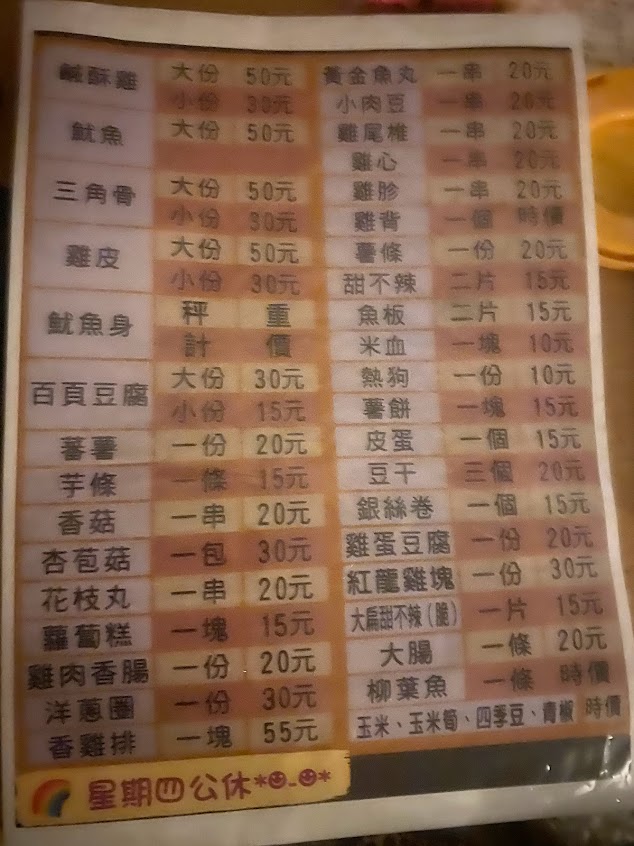 鹹酥雞 大份 50元
小份 30元
魷魚 大份 50元
三角骨 大份 50元
小份 30元
雞皮 大份 50元
小份 30元
魷魚身 秤重
計價
百頁豆腐 大份 30元
小份 15元
蕃薯 一份 20元
芋條 一條 15元
香菇 一串 20元
杏苞菇 一包 30元
花枝丸 一串 20元
蘿蔔糕 一塊 15元
雞肉香腸 一份 20元
洋蔥圈 一份 30元
香雞排 一塊 55元
黃金魚丸 一串 20元
小肉豆 一串 20元
雞尾椎 一串 20元
雞心 一串 20元
雞胗 一串 20元
雞背 一個 時價
薯條 一份 20元
甜不辣 二片 15元
魚板 二片 15元
米血 一塊 10元
熱狗 一份 10元
薯餅 一塊 15元
皮蛋 一個 15元
豆干 三個 20元
銀絲卷 一個 15元
雞蛋豆腐 一份 20元
紅龍雞塊 一份 30元
大扁甜不辣(脆) 一片 15元
大腸 一條 20元
柳葉魚 一條 時價
玉米、玉米筍、四季豆、青椒 時價
星期四公休*☻-☻*